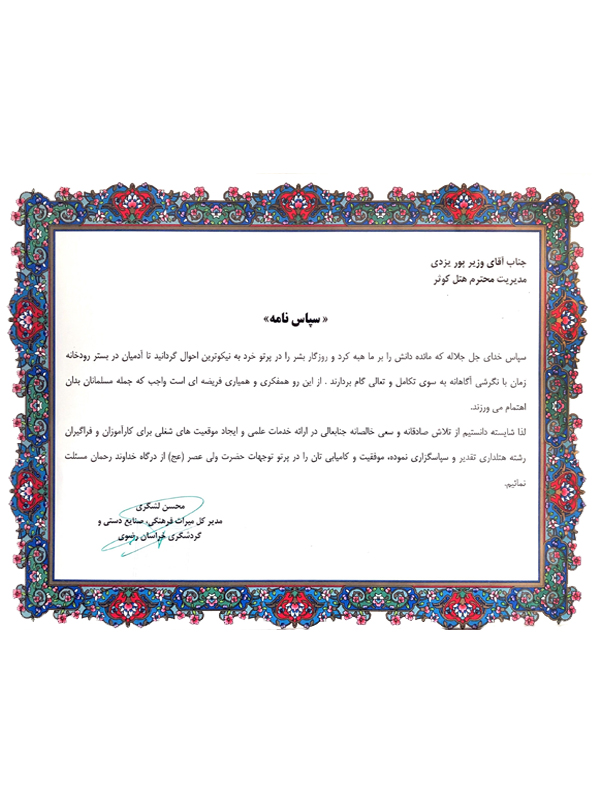 جناب آقای وزیر پور یزدی
مدیریت محترم هتل کوثر
« سپاس نامه»
سپاس خدای جل جلاله که مائده دانش را بر ما هبه کرد و روزگار بشر را در پرتو خرد به نیکوترین احوال گردانید تا آدمیان در بستر رودخانه
زمان با نگرشی آگاهانه به سوی تکامل و تعالی گام بردارند . از این رو همفکری و همیاری فریضه ای است واجب که جمله مسلمانان بدان
اهتمام می ورزند.
لذا شایسته دانستیم از تلاش صادقانه و سعی خالصانه جنابعالی در ارائه خدمات علمی و ایجاد موقعیت های شغلی برای کارآموزان و فراگیران
رشته هتلداری تقدیر و سپاسگزاری نموده، موفقیت و کامیابی تان را در پرتو توجهات حضرت ولی عصر (عج) از درگاه خداوند رحمان مسئلت
نمائیم.
محسن لشگری
مدیر کل میراث فرهنگی، صنایع دستی و
گردشگری خراسان رضوی